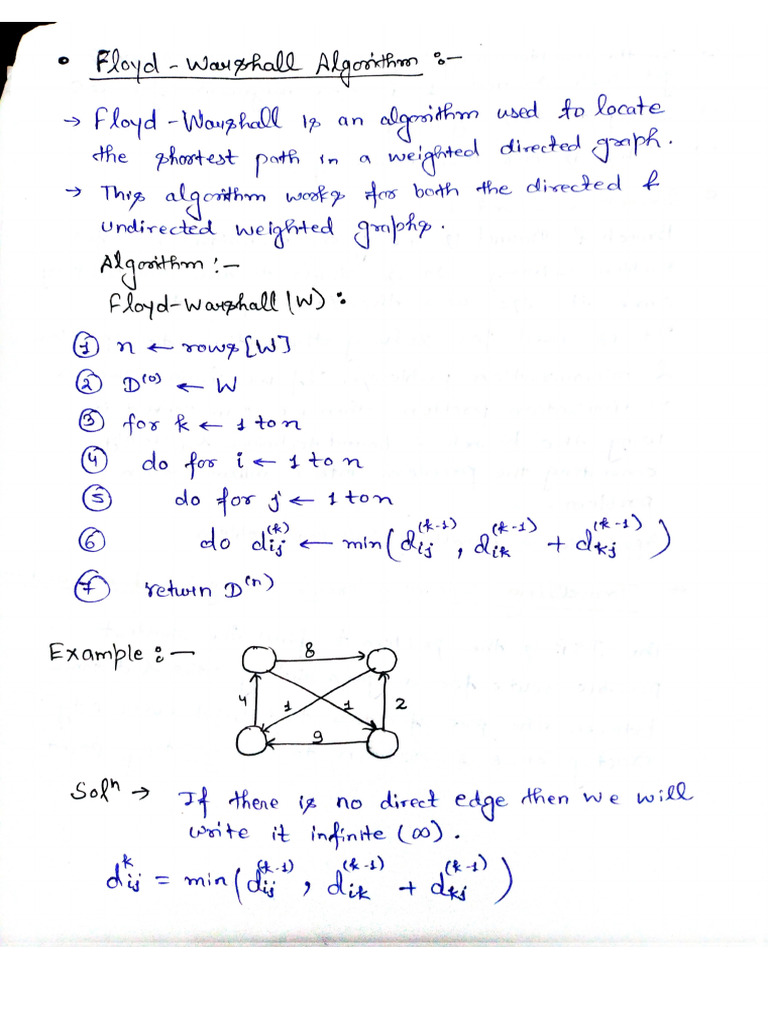 • Floyd-Warshall Algorithm :-
→ Floyd-Warshall is an algorithm used to locate
the shortest path in a weighted directed graph.
→ This algorithm works for both the directed &
undirected weighted graphs.
Algorithm :-
Floyd-Warshall (W) :
① n ← rows [W]
② D⁽⁰⁾ ← W
③ for k ← 1 to n
④ do for i ← 1 to n
⑤ do for j ← 1 to n
⑥ do dᵢⱼ⁽ᵏ⁾ ← min(dᵢⱼ⁽ᵏ⁻¹⁾, dᵢₖ⁽ᵏ⁻¹⁾ + dₖⱼ⁽ᵏ⁻¹⁾)
⑦ return D⁽ⁿ⁾
Example :-
8
4 1 1 2
9
Solⁿ → If there is no direct edge then we will
write it infinite (∞).
dᵢⱼᵏ = min(dᵢⱼ⁽ᵏ⁻¹⁾, dᵢₖ⁽ᵏ⁻¹⁾ + dₖⱼ⁽ᵏ⁻¹⁾)